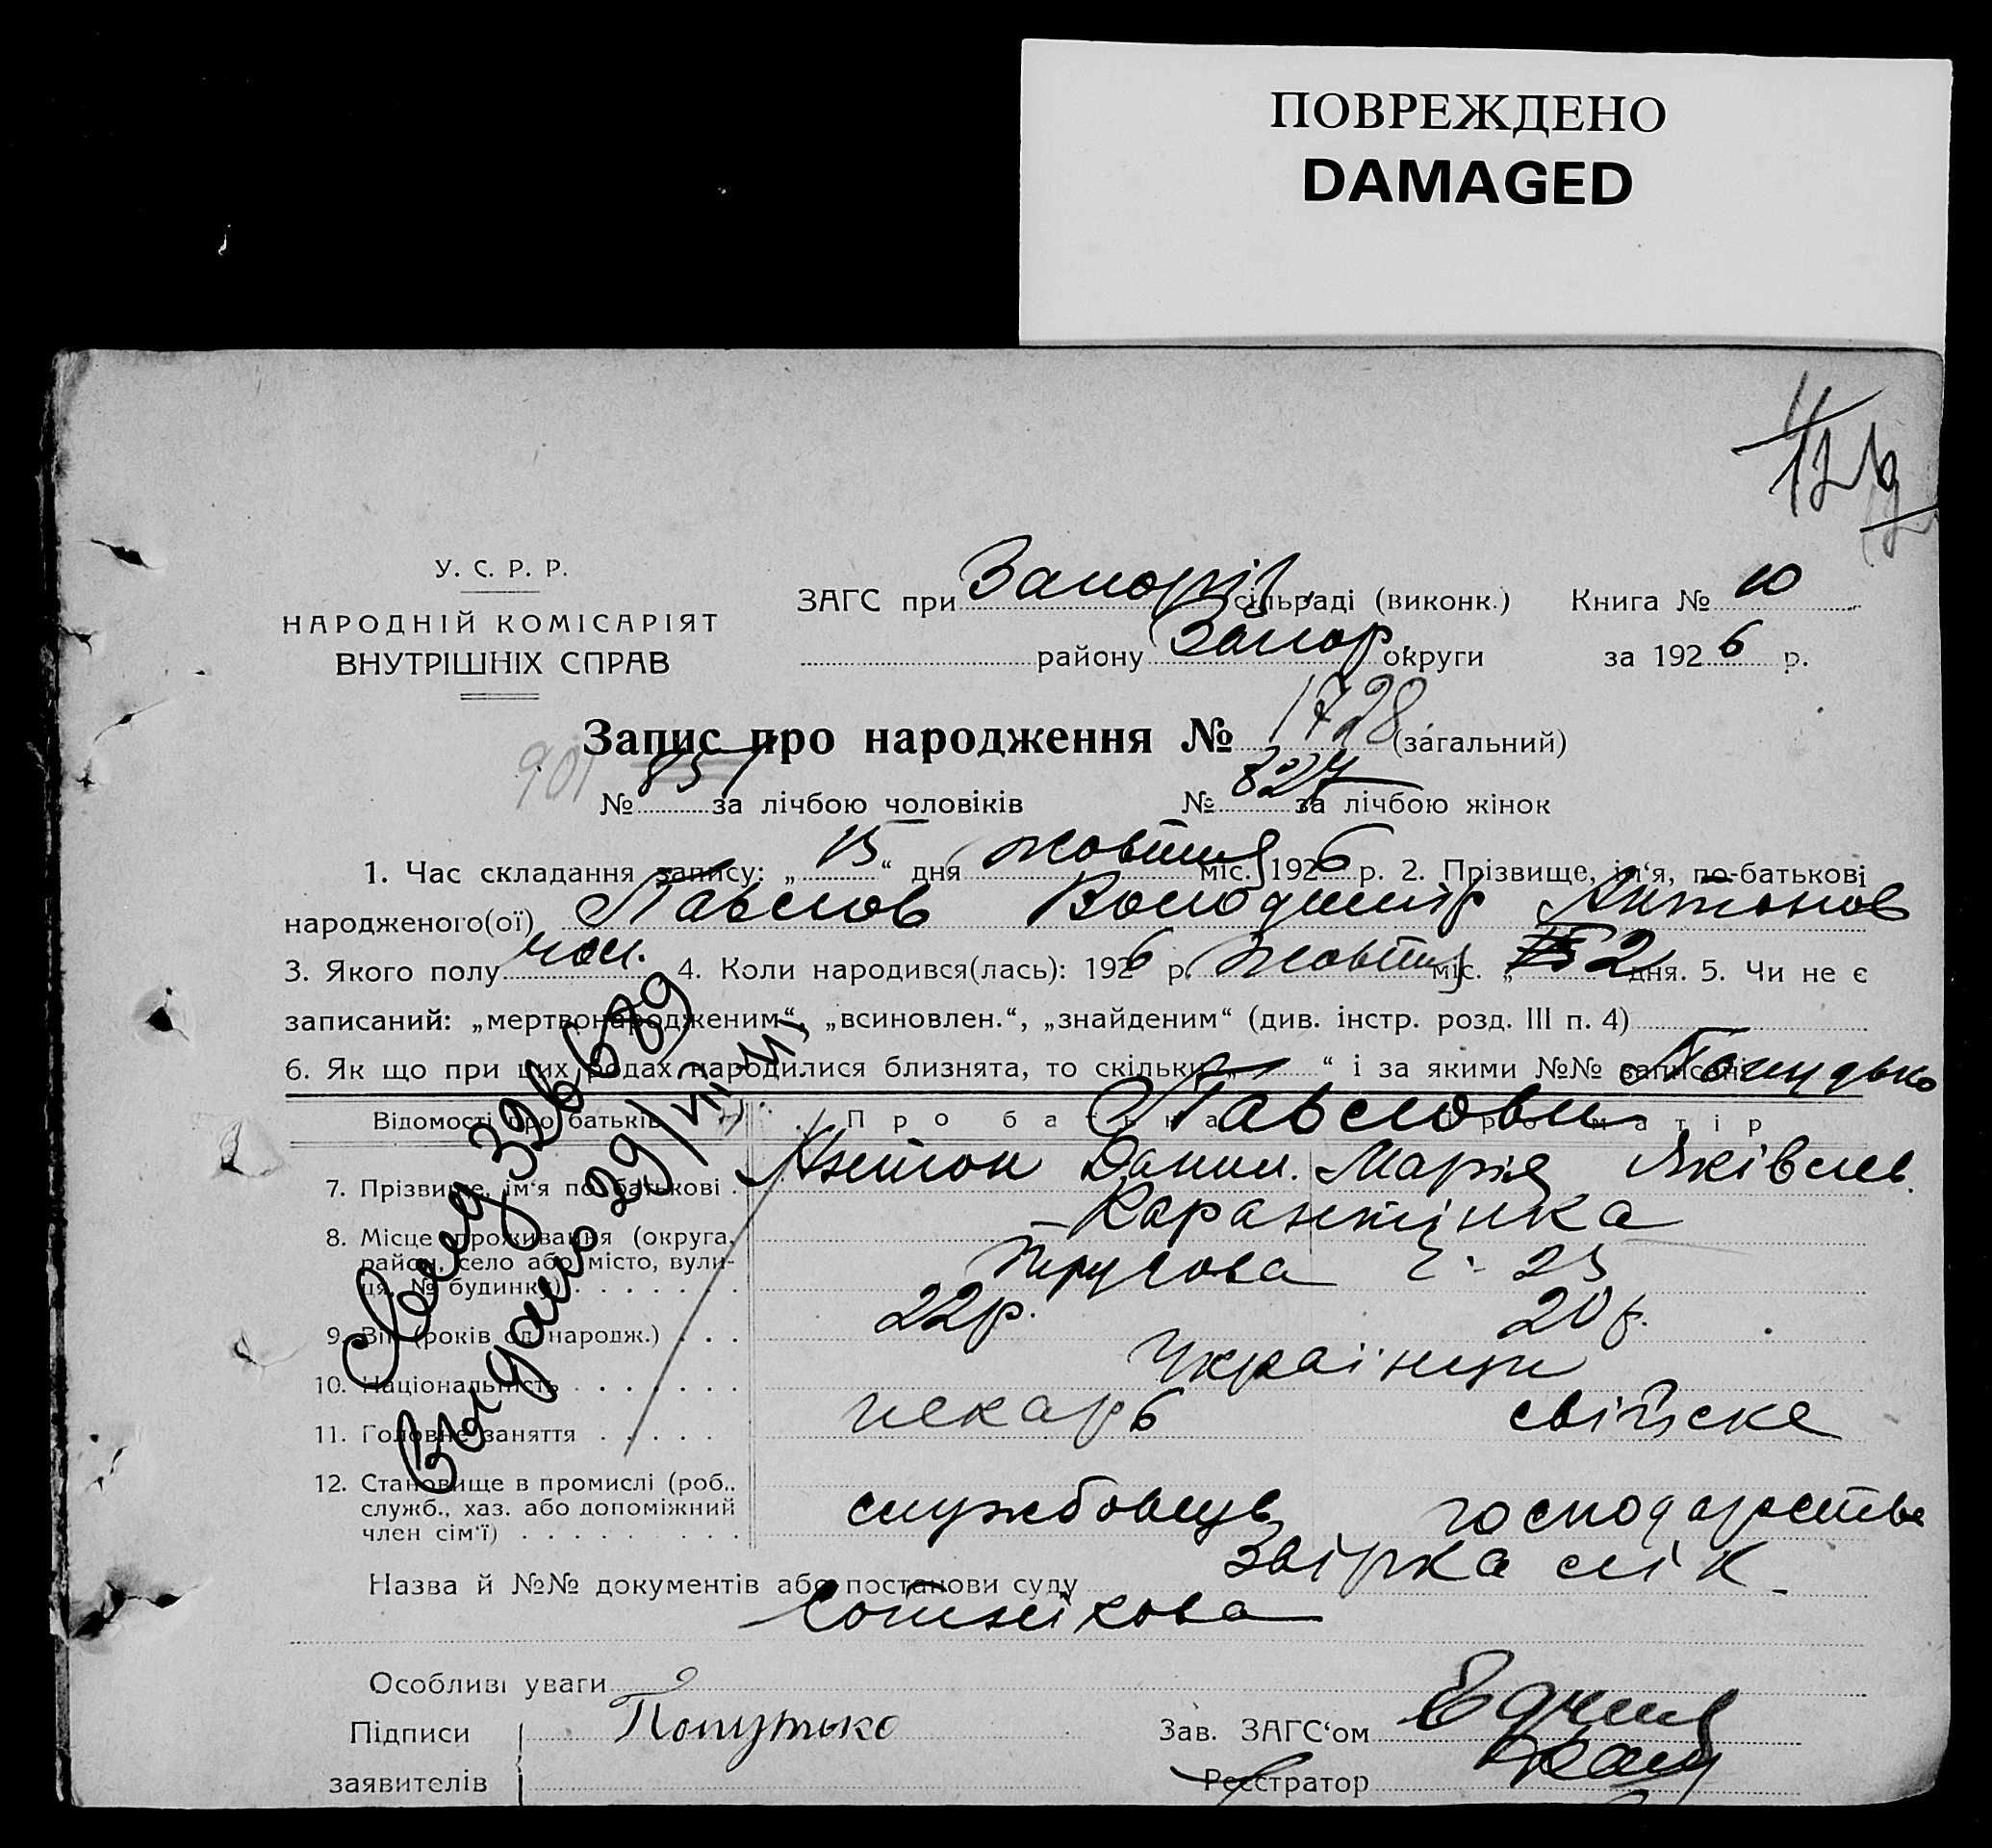 ПОВРЕЖДЕНО
DAMAGED
У. С. Р. Р.
НАРОДНІЙ КОМІСАРІЯТ
ВНУТРІШНІХ СПРАВ
ЗАГС при Запоріз. сільраді (виконк.) Книга № 10
району Запор. округи за 1926 р.
Запис про народження № 1728 (загальний)
901 № 851 за лічбою чоловіків № 827 за лічбою жінок
1. Час складання запису: „15“ дня жовтня міс. 1926 р. 2. Прізвище, ім‘я, по-батькові
народженого(ої) Павлов Володимир Антонов
3. Якого полу чол. 4. Коли народився(лась): 1926 р. жовтня міс. „ 2 дня. 5. Чи не є
записаний: „мертвонародженим“, „всиновлен.“, „знайденим“ (див. інстр. розд. III п. 4)
6. Як що при цих родах народилися близнята, то скільки „ — “ і за якими №№ записані
Відомості про батьків Про батька Про матір
Павлови
7. Прізвище, ім‘я по-батькові . Антон Данил. Марія Яківлев.
8. Місце проживання (округа, Карантінка
район, село або місто, вули-
ця, № будинку) . . . . . . . Трусова 23
9. Вік (років од народж.) . . . 22р. 20 р.
10. Національність . . . . . . . Українци
11. Головне заняття . . . . . пекарь свійске
12. Становище в промислі (роб..
служб., хаз. або допоміжний
член сім‘ї) . . . . . . . . службовець господарство
Назва й №№ документів або постанови суду Звірка
Сотнікова
Особливі уваги
Підписи Попутько Зав. ЗАГС‘ом
заявителів Реєстратор
Выдано 29/VII